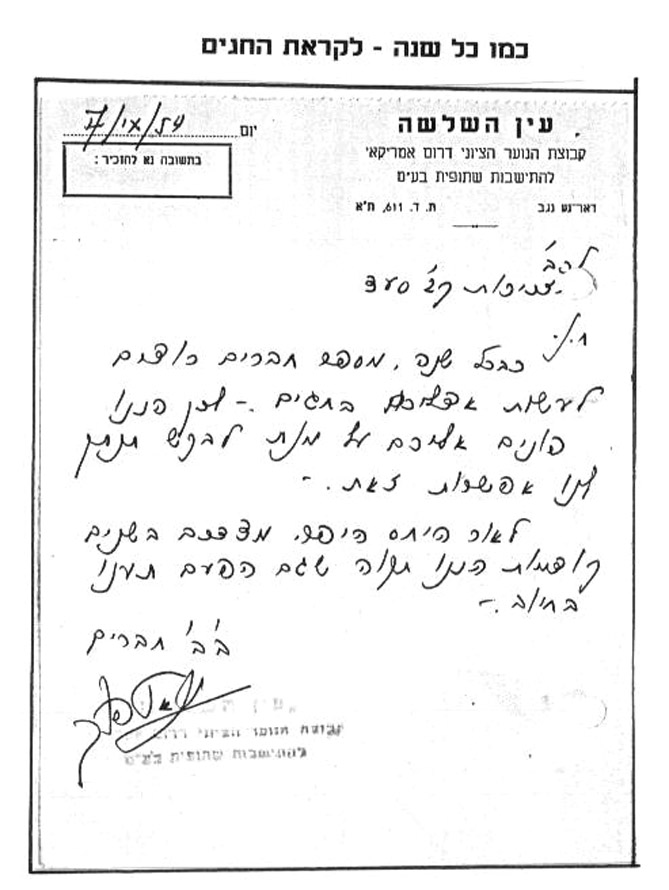 כמו כל שנה - לקראת החגים
עין השלשה
קבוצת הנוער הציוני דרום אמריקאי
להתישבות שתופית בע״מ
דאר־נע נגב ת. ד. 611, ת״א
יום
בתשובה נא להזכיר:
לכב׳
מזכירות קב׳ סעד
א.נ.
כבכל שנה, מספר חברים רוצים
לעשות אצלכם בחגים. - לכן הננו
פונים אליכם על מנת לבקש תתנו
לנו אפשרות זאת. -
לאור היחס היפה מצדכם בשנים
קודמות הננו תקוה שגם הפעם תענו
בחיוב. -
ב׳ב׳ חברים
קבוצת הנוער הציוני דרום
להתישבות שתופית בע״מ